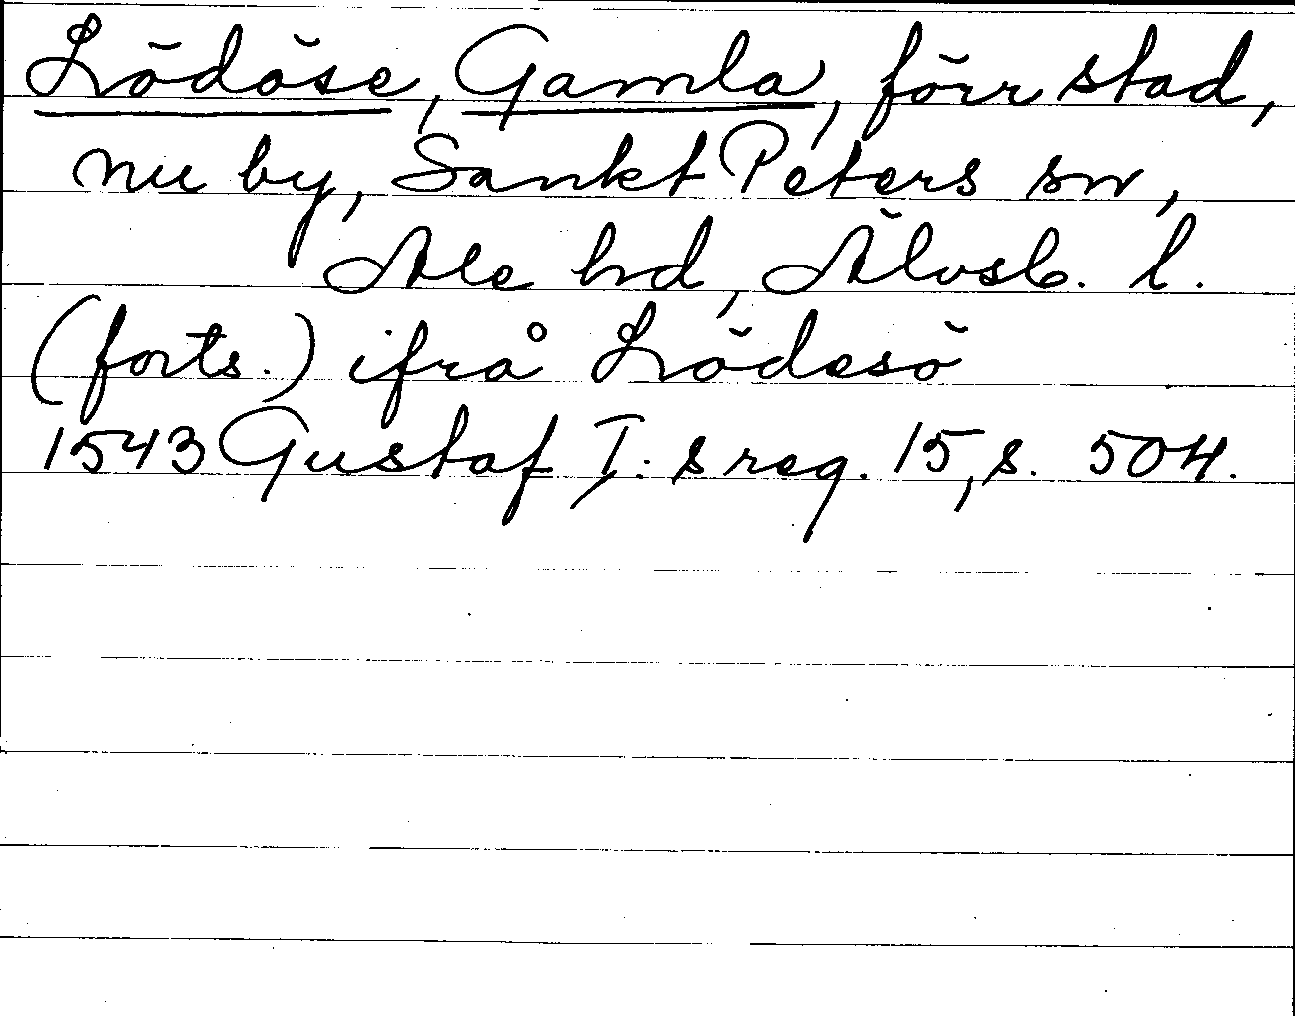 Lödöse, Gamla, förr stad,
nu by, Sankt Peters sn,
Ale hd, Älvsb. l.
(forts.) ifrå Lödesö
1543 Gustaf I:s reg. 15, s. 504.